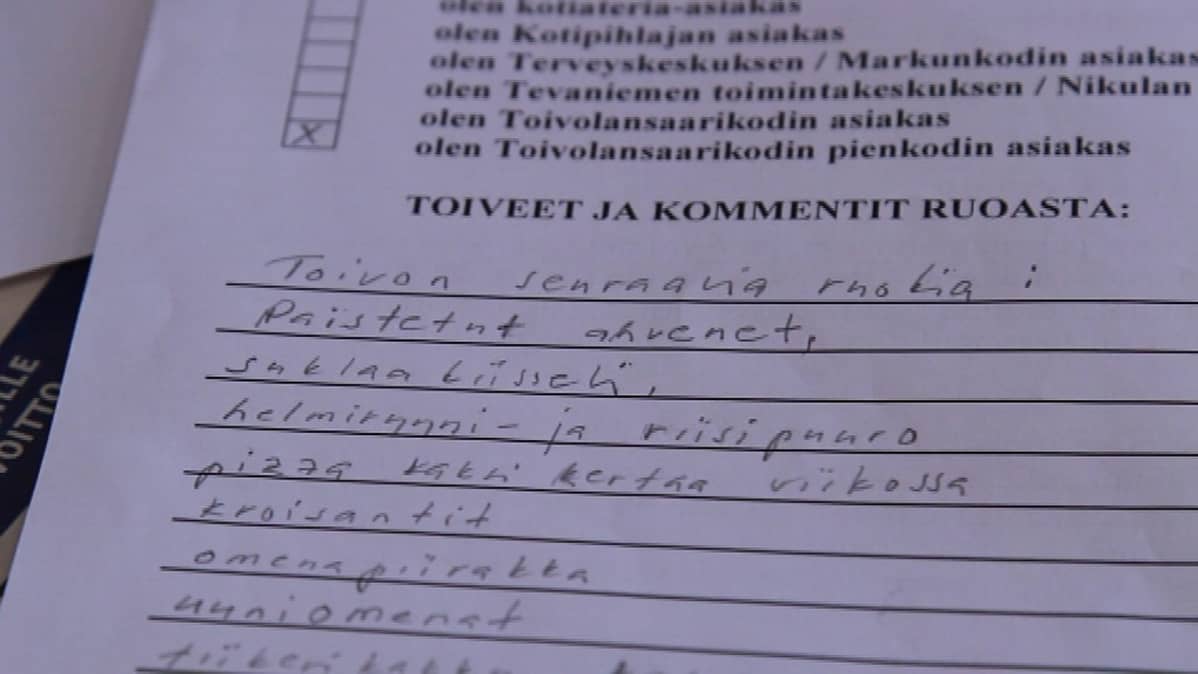 olen kotiateria-asiakas
olen Kotipihlajan asiakas
olen Terveyskeskuksen / Markunkodin asiakas
olen Tevaniemen toimintakeskuksen / Nikulan
olen Toivolansaarikodin asiakas
X
olen Toivolansaarikodin pienkodin asiakas
TOIVEET JA KOMMENTIT RUOASTA:
Toivon seuraavia ruokia :
Paistetut ahvenet,
suklaa kiisseli,
helmiryyni- ja riisipuuro
pizza kaksi kertaa viikossa
kroisantit
omenapiirakka
uuniomenat
tiikerikakku
VOITTO